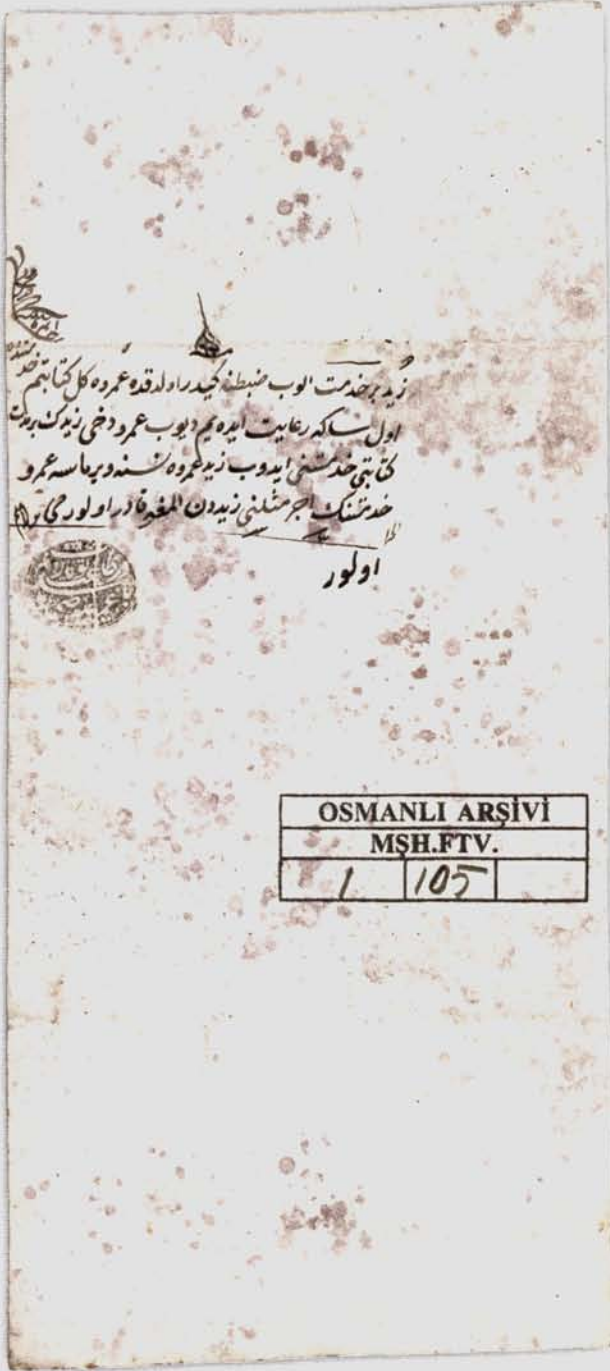 زيد بر خدمت الوب ضبطنه كيدر اولدقده عمروه كل كتابتم خدمتنده
اول سكا رعايت ايده يم ديوب عمرو دخى زيدك بر مدت
كتابتى خدمتنى ايدوب زيد عمروه نسنه ويرماسه عمرو
خدمتنك اجر مثلنى زيددن المغه قادر اولور مى
اولور
OSMANLI ARŞİVİ
MŞH.FTV.
1 105